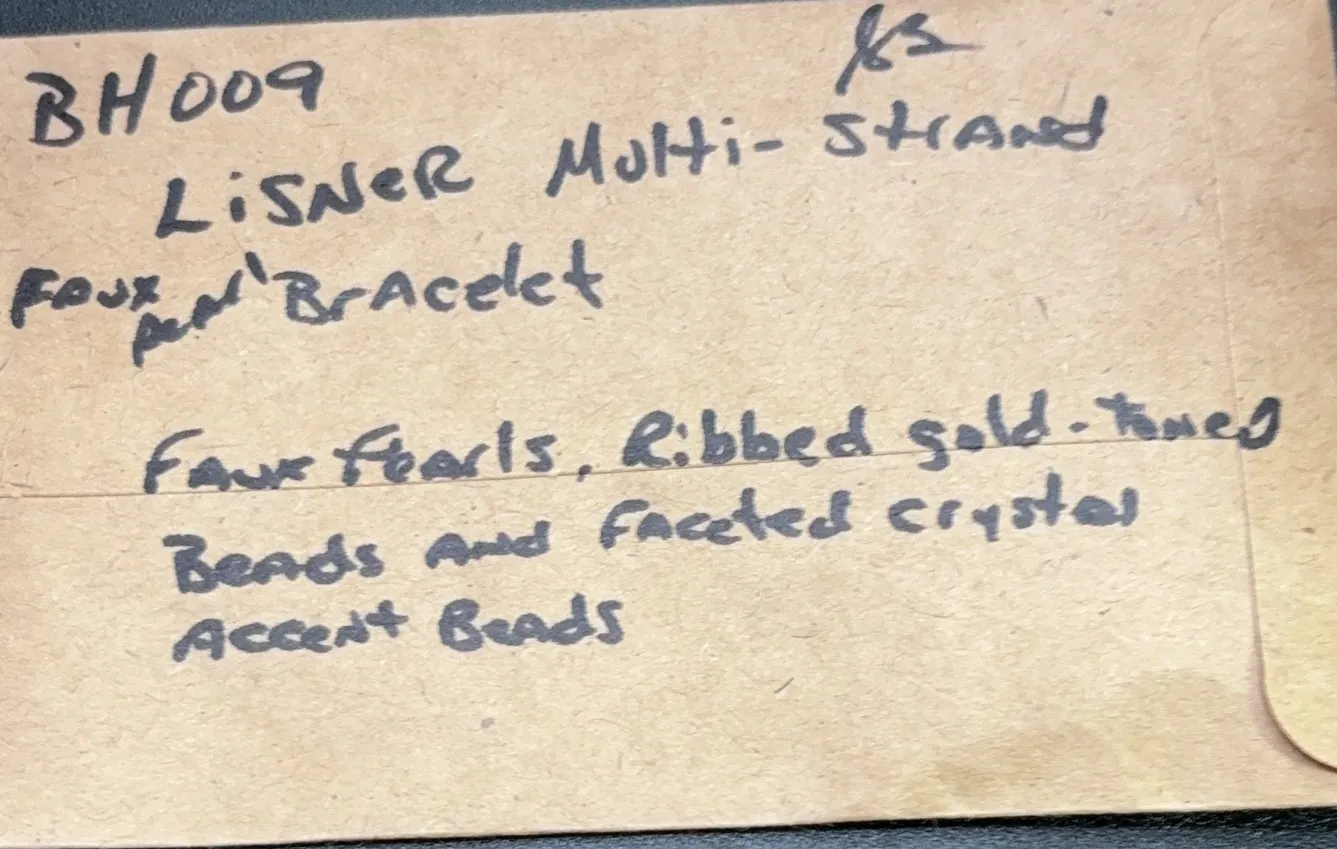 BH009
LiSNeR Multi-Strand
Faux Bracelet
Faux Pearls, Ribbed gold-Toned
Beads And Faceted crystal
Accent Beads